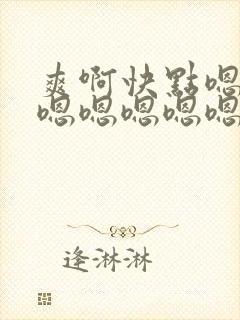 爽啊快點嗯
嗯嗯嗯嗯嗯
逢淋淋